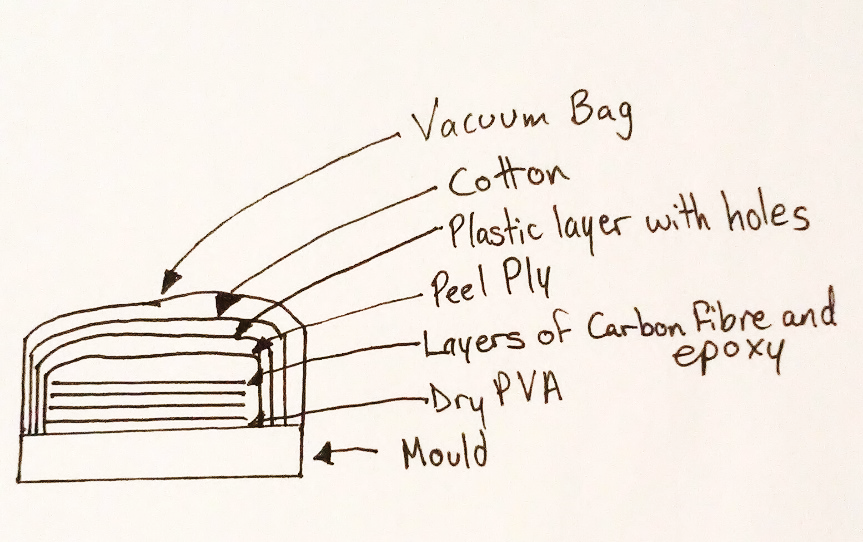 Vacuum Bag
Cotton
Plastic layer with holes
Peel Ply
Layers of Carbon Fibre and
epoxy
Dry PVA
Mould